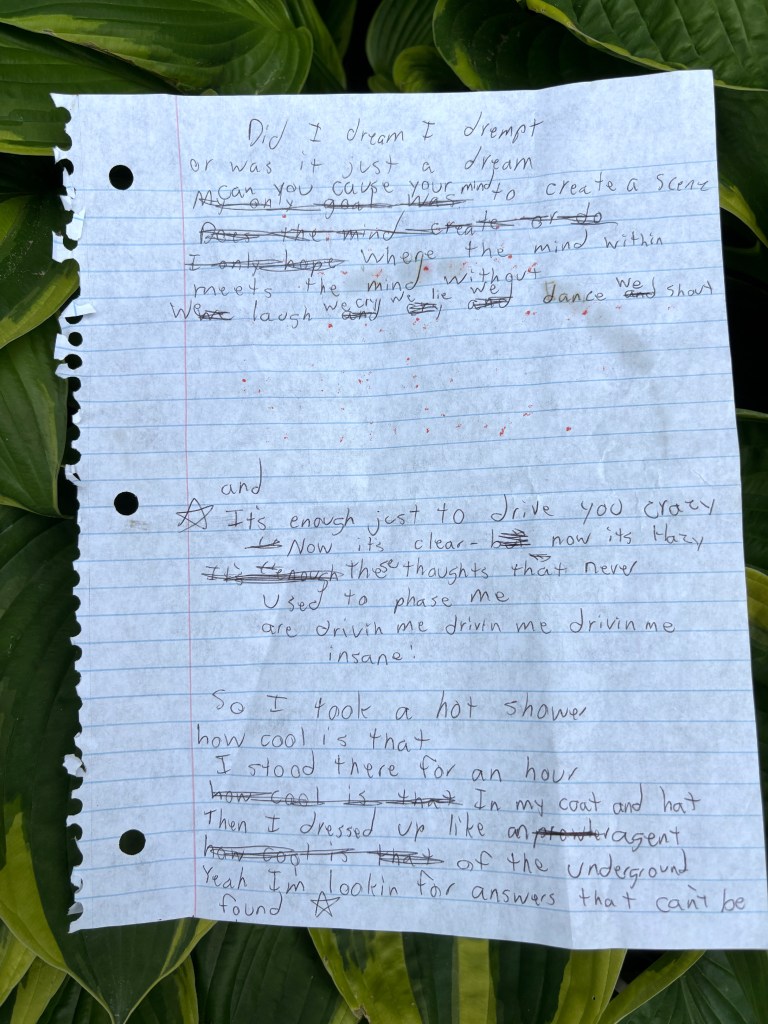 Did I dream I drempt
or was it just a dream
Can you cause your mind to create a scene
My only goal was
Does the mind create or do
I only hope Where the mind within
meets the mind without
We laugh we cry we lie we dance we shout
and
It's enough just to drive you crazy
Now its clear - now its Hazy
It's enough These thoughts that never
used to phase me
are drivin me drivin me drivin me
insane!
So I took a hot shower
how cool is that
I stood there for an hour
how cool is that In my coat and hat
Then I dressed up like an prowler agent
how cool is that of the underground
Yeah I'm lookin for answers that can't be
found